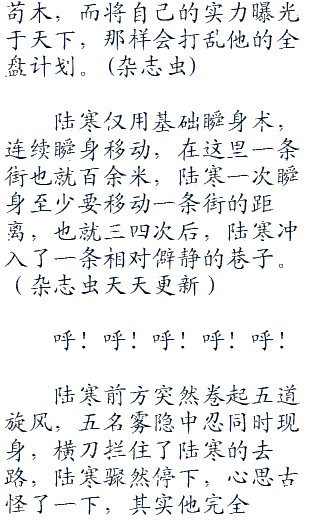 苟木，而将自己的实力曝光
于天下，那样会打乱他的全
盘计划。(杂志虫)
陆寒仅用基础瞬身术，
连续瞬身移动，在这里一条
街也就百余米，陆寒一次瞬
身至少要移动一条街的距
离，也就三四次后，陆寒冲
入了一条相对僻静的巷子。
（杂志虫天天更新）
呼！呼！呼！呼！呼！
陆寒前方突然卷起五道
旋风，五名雾隐中忍同时现
身，横刀拦住了陆寒的去
路，陆寒骤然停下，心思古
怪了一下，其实他完全